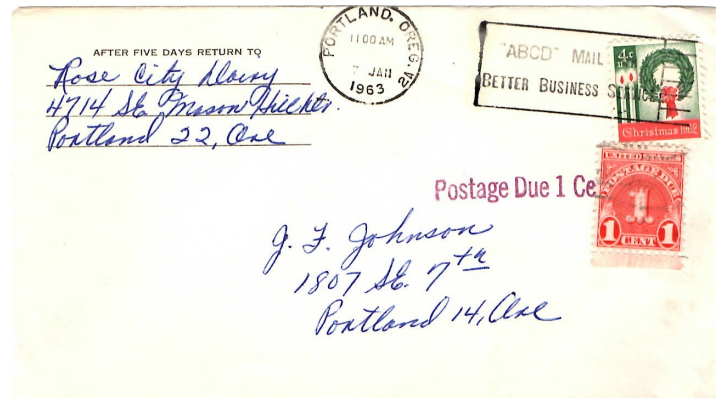 AFTER FIVE DAYS RETURN TO
Rose City Dairy
4714 SE Mason Hill Dr.
Portland 22, Ore
PORTLAND, OREG.
11 00 AM
7 JAN
1963
2A
"ABCD" MAIL
BETTER BUSINESS
4¢
Christmas 1962
Postage Due 1 Ce
UNITED STATES
POSTAGE DUE
1
1 CENT 1
J. F. Johnson
1807 SE. 7th
Portland 14, Ore